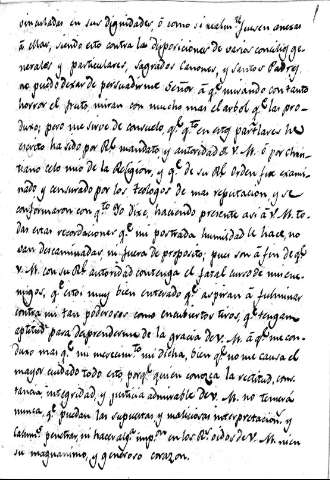 vinculadas en sus Dignidades, ó como si realm.te fuesen anexas
á ellas, siendo esto contra las disposiciones de varios concilios ge-
nerales y particulares, sagrados Canones, y santos Padres,
no puedo dexar de persuadirme Señor á q.e mirando con tanto
horror el fruto, miran con mucho mas el arbol q.e las pro-
duxo; pero me sirve de consuelo, q.e q.to en estos particulares he
escrito ha sido por R.l mandato y autoridad de V. M. ó por Chris-
tiano celo mio de la Religion, y q.e de su R.l orden fue exami-
nado y censurado por los teologos de mas reputacion y se
conformaron con q.to Yo dixe, haciendo presente asi á V. M. to-
das estas recordaciones q.e mi postrada humildad le hace, no
van descaminadas, ni fuera de proposito; pues son á fin de q.e
V. M. con su R.l autoridad contenga el fatal curso de mis ene-
migos, q.e estoi muy bien enterado q.e aspiran á fulminar
contra mi tan poderosos como encubiertos tiros, q.e tengan
aptitud para desprenderme de la gracia de V. M. á q.e me con-
duxo mas q.e mi merecim.to mi dicha, bien q.e no me causa el
mayor cuidado todo esto, porq.e quien conozca la rectitud, cons-
tancia integridad, y justicia admirable de V. M. no temerá
nunca, q.e puedan las supuestas y maliciosas interpretacion.s y
penetrar, ni hacer alg.a imp.on en los R.s oidos de V. M. ni en
su magnanimo, y generoso corazon.